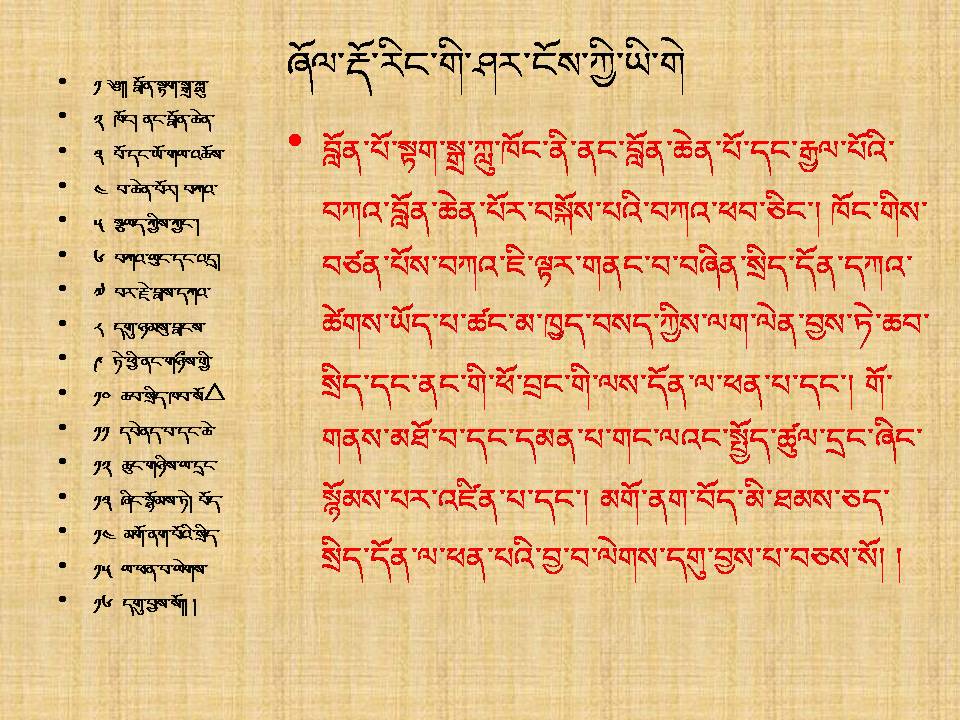 ཞོལ་རྡོ་རིང་གི་ཤར་ངོས་ཀྱི་ཡི་གེ
༡ ༄༅། བློན་སྟག་སྒྲ་ཀླུ་
༢ ཁོང། ནང་བློན་ཆེན་
༣ པོ་དང་ཡོ་གལ་འཆོས་
༤ པ་ཆེན་པོར། བཀའ་
༥ སྩལད་ཀྱིས་ཀྱང༌།
༦ བཀའ་ལུང་དང་འདྲ།
༧ བར་རྗེ་བླས་དཀའ་
༨ དགུ་ཉམསུ་བླངས་
༩ ཏེ་ཕྱི་ནང་གཉིས་ཀྱི་
༡༠ ཆབ་སྲིད་ཁབ་སོ△
༡༡ དཔེནད་པ་དང་ཆེ་
༡༢ ཆུང་གཉིས་ལ་དྲང་
༡༣ ཞིང་སྙོམས་ཏེ། བོད་
༡༤ མགོ་ནག་པོའི་སྲིད་
༡༥ ལ་ཕན་པ་ལེགས་
༡༦ དགུ་བྱས་སོ།། །
བློན་པོ་སྟག་སྒྲ་ཀླུ་ཁོང་ནི་ནང་བློན་ཆེན་པོ་དང་རྒྱལ་པོའི་
བཀའ་བློན་ཆེན་པོར་བསྐོས་པའི་བཀའ་ཕབ་ཅིང་། ཁོང་གིས་
བཙན་པོས་བཀའ་ཇི་ལྟར་གནང་བ་བཞིན་སྲིད་དོན་དཀའ་
ཚེགས་ཡོད་པ་ཚང་མ་ཁྱད་བསད་ཀྱིས་ལག་ལེན་བྱས་ཏེ་ཆབ་
སྲིད་དང་ནང་གི་ཕོ་བྲང་གི་ལས་དོན་ལ་ཕན་པ་དང་། གོ་
གནས་མཐོ་བ་དང་དམན་པ་གང་ལའང་སྤྱོད་ཚུལ་དྲང་ཞིང་
སྙོམས་པར་འཛིན་པ་དང་། མགོ་ནག་བོད་མི་ཐམས་ཅད་
སྲིད་དོན་ལ་ཕན་པའི་བྱ་བ་ལེགས་དགུ་བྱས་པ་བཅས་སོ། །